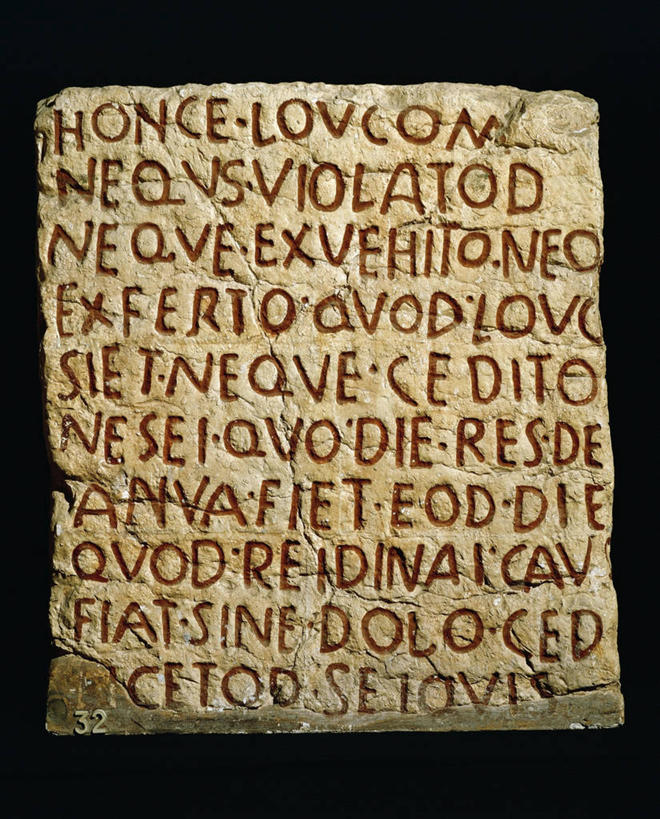 HONCE·LOVCOM
NEQVS·VIOLATOD
NEQVE·EXVEHITO·NEQ
EXFERTO·QVOD·LOVC
SIET·NEQVE·CEDITO
NESEI·QVO·DIE·RES·DE
ANVA·FIET·EOD·DIE
QVOD·REIDINAI·CAV
FIAT·SINE·DOLO·CED
CETOD·SEIQVIS
32